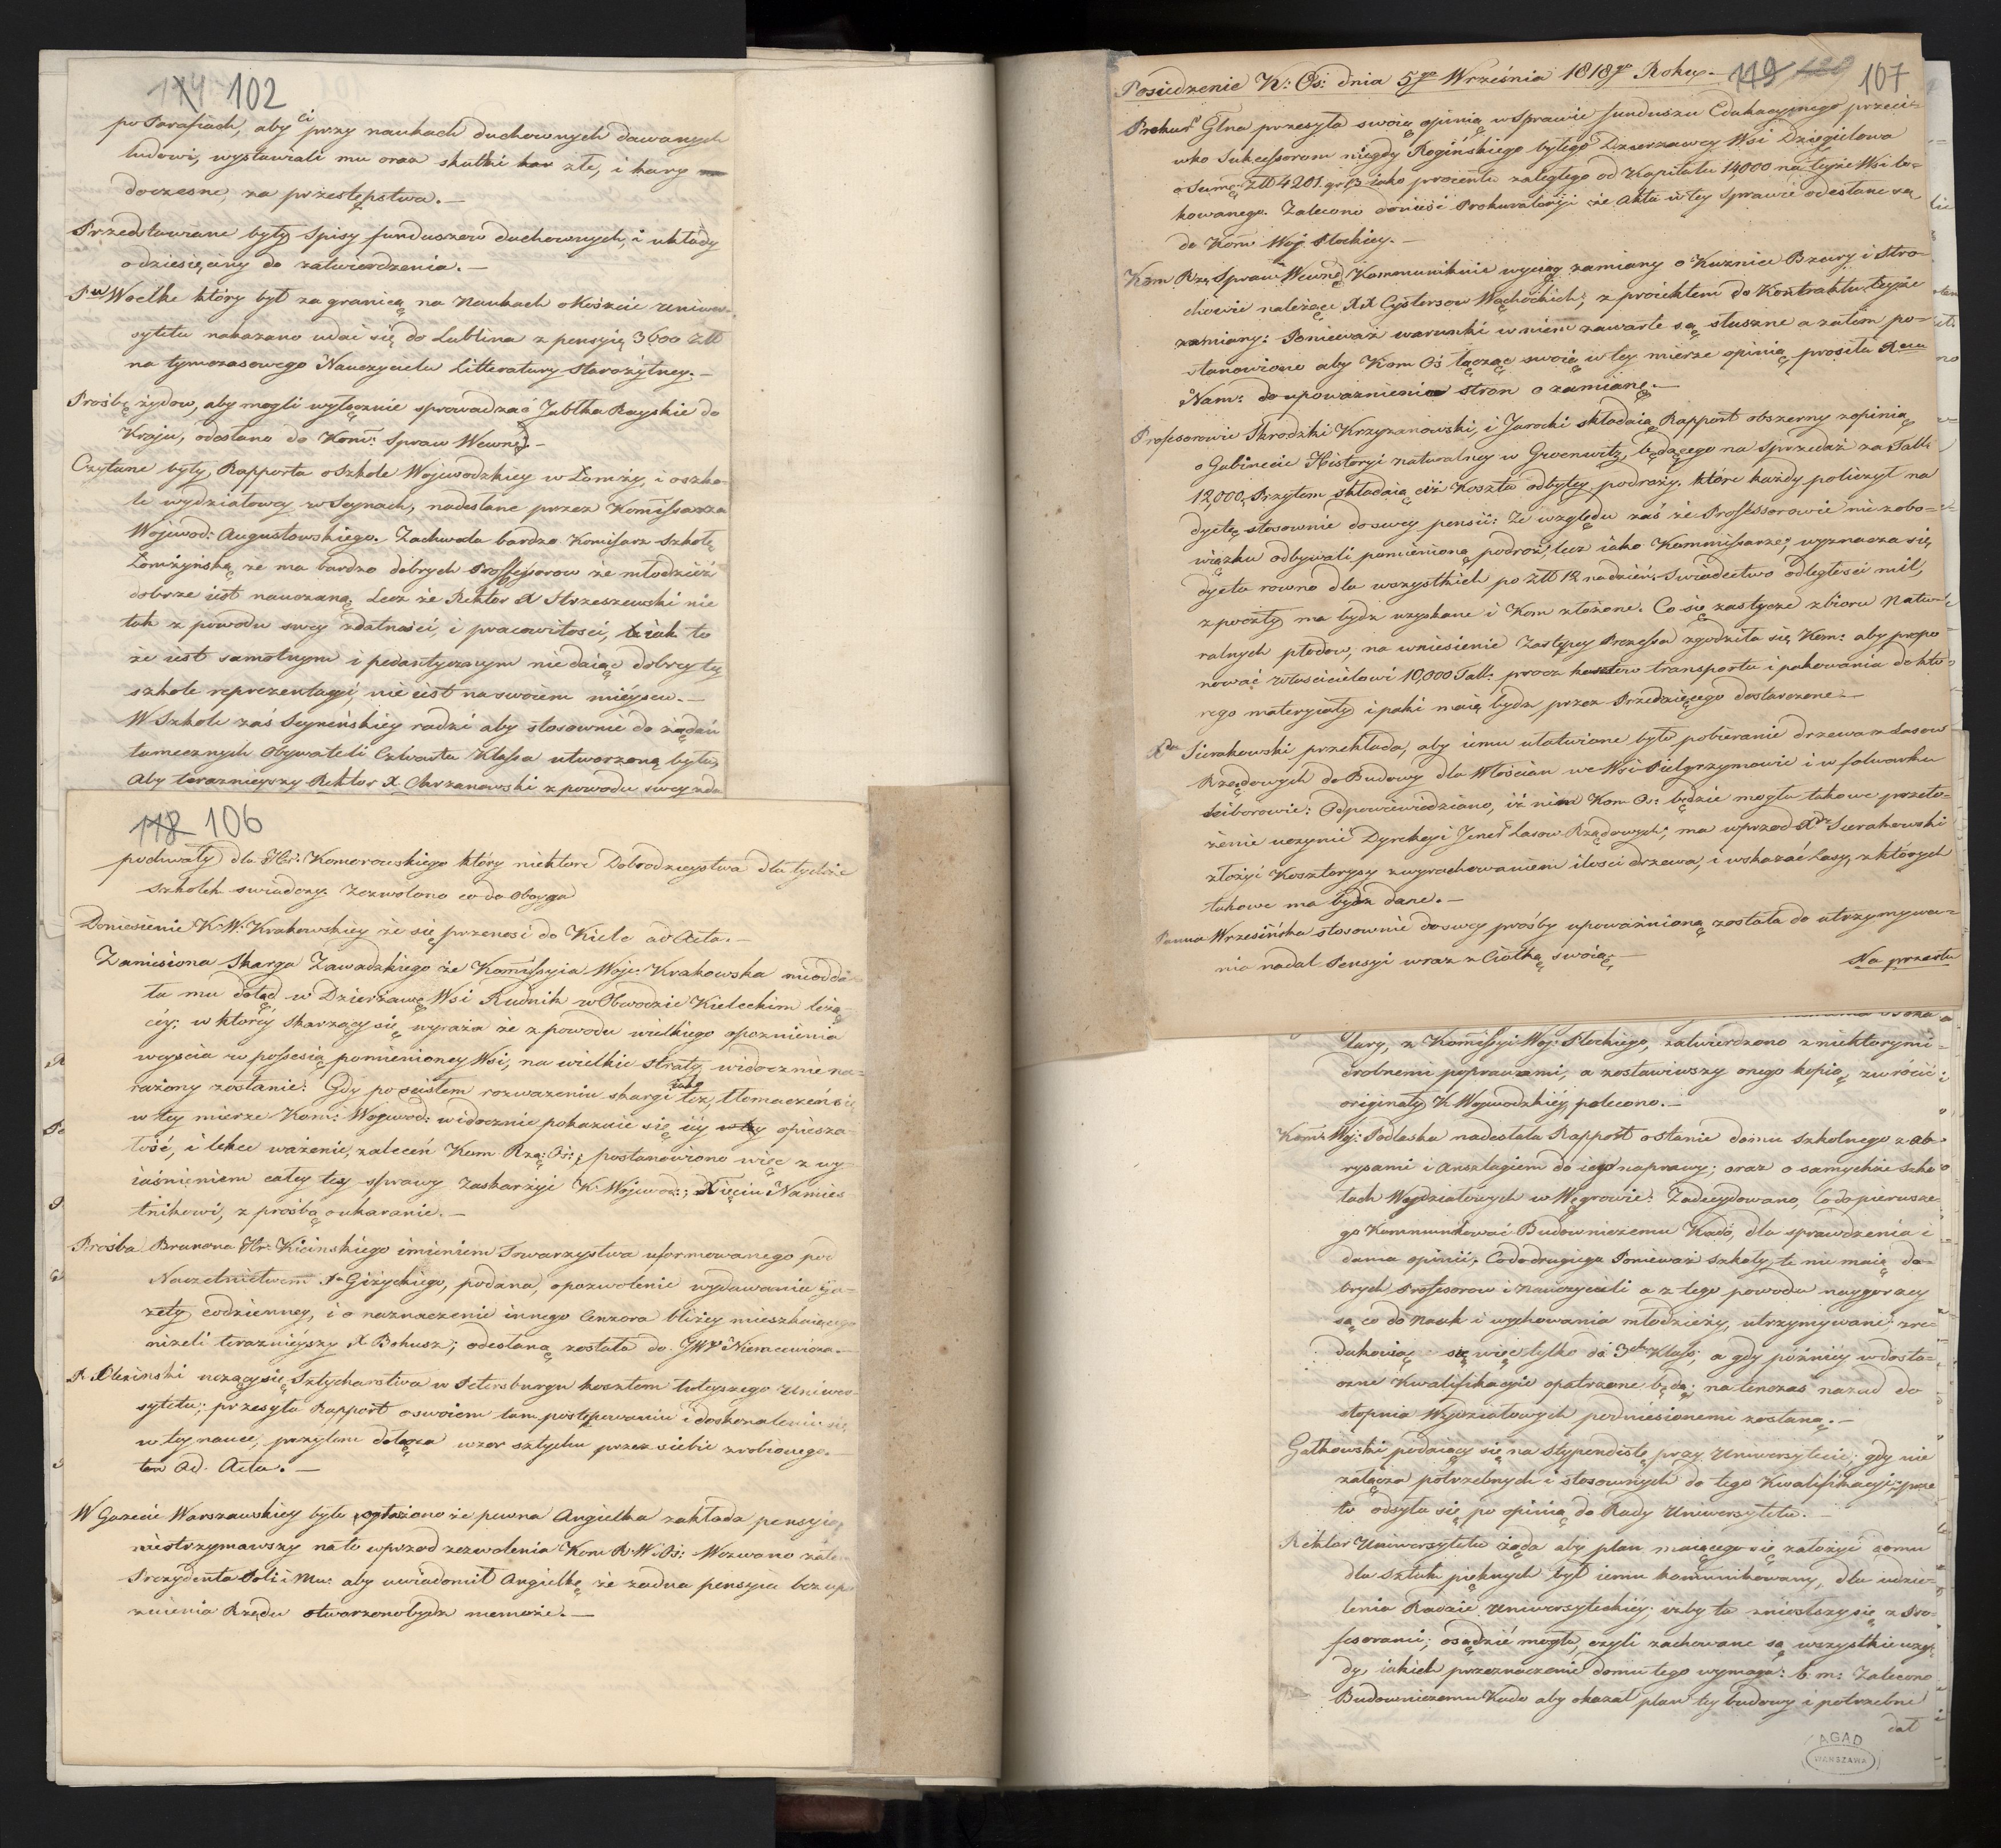 114 102
po Parafiach, aby ci przy naukach duchownych dawanych
ludowi, wystawiali mu oraz skutki kar złe, i kary
doczesne, za przestępstwa.—
Przedstawiane były Spisy funduszow duchownych, i układy
o dziesięciny do zatwierdzenia.—
Pu Woelke który był za granicą na Naukach o Koszcie Uniwer-
sytetu nakazano udać się do Lublina z pensyią 3600 Złł
na tymczasowego Nauczyciela Litteratury Starożytney.—
Prośbę żydow, aby mogli wyłącznie sprowadzać Jabłka Rayskie do
Kraju, odesłano do Kom: Spraw Wewnę:—
Czytane były Rapporta o Szkole Wojewodzkiey w Łomży, i o szko-
le wydziałowey w Seynach, nadesłane przez Kommissarza
Wojewod: Augustowskiego. Zachwala bardzo Komisarz Szkołę
Łomżyńską że ma bardzo dobrych Professorow że młodzież
dobrze iest nauczaną. Lecz że Rektor X Strzeszewski nie
tak z powodu swey zdatności, i pracowitości, iak to
że iest samotnym i pedantycznym nie daiąc dobrey tey
szkole reprezentacyi, nie iest na swoiem mieyscu.—
W Szkole zaś Seyneńskiey radzi aby stosownie do żądań
tamecznych Obywateli Czwarta Klassa utworzoną była,
Aby teraznieyszy Rektor X Chrzanowski z powodu swey zda
118 106
pochwały dla Hr: Komorowskiego który niektore Dobrodzieystwa dla tychże
Szkołek swiadczy. Zezwolono co do oboyga
Doniesienie K: W: Krakowskiey że się przenosi do Kielc ad Acta.—
Zaniesiona Skarga Zawadzkiego że Kommissyia Woje: Krakowska nieodda-
ła mu dotąd w Dzierżawę Wsi Rudnik w Obwodzie Kieleckim leżą-
cey; w ktorey skarżący się wyraża że z powodu wielkiego opoznienia
weyscia w possesią pomienioney Wsi, na wielkie straty widocznie na-
rażony zostanie: Gdy po scisłem rozważeniu skargi iako też, tłomaczeń się
w tey mierze Kom: Wojewod: widocznie pokazuie się iey w tey opiesza-
łość, i lekce ważenie, zaleceń Kom Rzą: Oś:; postanowiono więc z wy-
iaśnieniem całey tey sprawy zaskarżyć K: Wojewod:; Xięciu Namies-
tnikowi, z prośbą o ukaranie.—
Prośba Brunona Hr: Kicinskiego imieniem Towarzystwa uformowanego pod
Naczelnictwem Pa Giżyckiego, podana, o pozwolenie wydawania Ga-
zety codzienney, i o naznaczenie innego Cenzora bliżey mieszkaiącego
niżeli teraznieyszy X Bohusz; odesłaną została do JW Niemcewicza.—
P. Oleszinski uczący się Sztycharstwa w Petersburgu kosztem tuteyszego Uniwer-
sytetu; przesyła Rapport o swoiem tam postępowaniu i doskonaleniu się
w tey nauce, przytem dołącza wzor sztychu przez siebie zrobionego.—
Ad. Acta.—
W Gazecie Warszawskiey było ogłoszono że pewna Angielka zakłada pensyią,
nieotrzymawszy na to wprzod zezwolenia Kom R: W: Oś: Wezwano zatem
Prezydenta Poli i Mu: aby uwiadomił Angielkę że żadna pensyia bez up-
znienia Rządu otworzono bydz niemoże.—
119 120 107
Posiedzenie K: Oś: dnia 5go Września 1818go Roku.—
Prokurа Glna przesyła swoią opinią w Sprawie funduszu Edukacyjnego przeci-
wko Sukcessorom niegdy Rogińskiego byłego Dzierzawcy Wsi Dzięgielowa
o Summę Złł 4201. gr 13 iako procentu zaległego od Kapitału 14000 na teyże Wsi lo-
kowanego. Zalecono donieść Prokuratoryi że Akta w tey Sprawie odesłane są
do Kom Woj. Płockiey.—
Kom Rzą Spraw Wewnę Kommunikuie wyciąg zamiany o Kuznice Bzury i Stro-
chowie należące XX Cystersow Wąchockich; z proiektem do Kontraktu teyże
zamiany: Ponieważ warunki w niem zawarte są słuszne a zatem po-
stanowiono aby Kom Oś łącząc swoią w tey mierze opinią, prosiła Xcia
Nam: do upoważnienia stron o zamianę.—
Profesorowie Skrodzki Krzyżanowski, i Jarocki składaią Rapport obszerny z opinią
o Gabinecie Historyi naturalney w Groenwitz, będącego na sprzedaż za Tall:
12,000, Przytem składaią też Koszta odbytey podroży, które każdy policzył na
dyetę stosownie do swey pensii: Ze względu zaś że Professorowie nie z obo-
wiązku odbywali pomienioną podroż, lecz iako Kommissarze; wyznacza się
dyeta rowno dla wszystkich po Złł 12 na dzień. Swiadectwo odległości mil,
z poczty ma bydz uzyskane i Kom złożone. Co się zastycze zbioru Natu-
ralnych płodow, na wniesienie Zastępcy Prezessa zgodziła się Kom: aby propo
nować właścicielowi 10,000 Tall: procz kosztow transportu i pakowania do któ-
rego materyiały i paki maią bydz przez Przedzięcego dostarczone.—
Xn Sierakowski przekłada, aby iemu ułatwione było pobieranie drzewa z Lasow
Rządowych do Budowy dla Włościan we Wsi Pielgrzymowie i w folwarku
Sciborowie: Odpowiedziano, iż nim Kom Oś: będzie mogła takowe przeło-
żenie uczynić Dyrekcyi Jeneł Lasow Rządowych; ma wprzod X Sierakowski
złożyć Kosztorysy z wyrachowaniem ilości drzewa, i wskazać Lasy, z których
takowe ma bydz dane.—
Panna Wrzesińska stosownie do swey prośby upoważnioną została do utrzymywa-
nia nadal Pensyi wraz z Ciotką swoią,—
Na przesta
Wary, z Kommissyi Woj: Płockiego, zatwierdzono z niektorymi
drobnemi poprawami, a zostawiwszy onego kopią, zwrócić
originały K Wojewodzkiéy polecono.—
Kom: Woj: Podlaska nadesłała Rapport o stanie domu szkolnego z ab-
rysami i Anszlagiem do iego naprawy; oraz o samychże szko-
łach Wydziałowych w Węgrowie: Zadecydowano, Co do pierwsze-
go Kommunikować Budowniczemu Kado, dla sprawdzenia i
dania opinii. Co do drugiego Ponieważ szkoły, te nie maią do-
brych Profesorow i Nauczycieli a z tego powodu naygorzey
są co do nauk i wychowania młodzieży, utrzymywani zre-
dukować się więc tylko do 3ch Klass; a gdy późniey w dosta-
czne Kwalifikacyie opatrzone będą; natenczas nazad do
stopnia Wydziałowych podniesionemi zostaną.—
Gałkowski podaiący się na stypendistę przy Uniwersytecie; gdy nie
załącza potrzebnych i stosownych do tego Kwalifikacyi; prze
to odsyła się po opinią do Rady Uniwersytetu.—
Rektor Uniwersytetu żąda aby plan maiącego się założyć domu
dla Sztuk pięknych był iemu komunikowany, dla udzie-
lenia Radzie Uniwersyteckiéy; iżby ta zniosłszy się z Pro-
fesorami; osądzić mogła, czyli zachowane są wszystkie wzglę-
dy, iakich przeznaczenie domu tego wymaga: b: m: Zalecono
Budowniczemu Kado aby okazał plan tey budowy i potrzebne
dał
AGAD
WARSZAWA